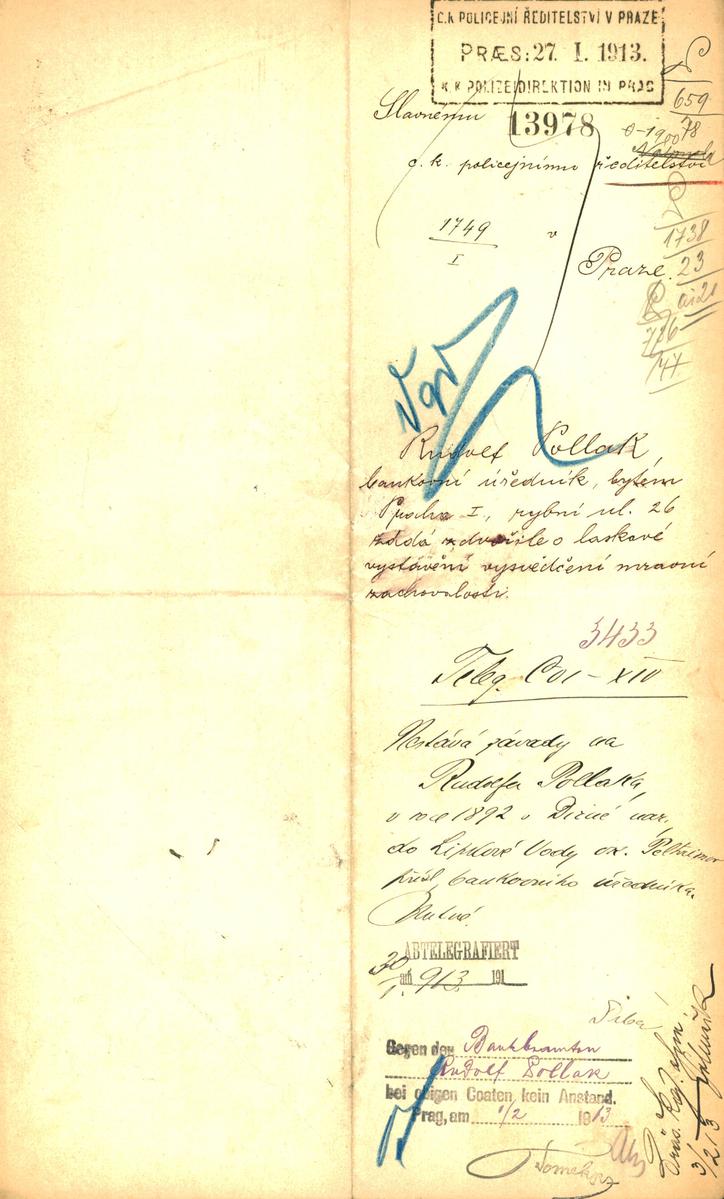 C.K. POLICEJNÍ ŘEDITELSTVÍ V PRAZE
PRÆS: 27. I. 1913.
K.K. POLIZEIDIREKTION IN PRAG
659
Slavnému
13978
c. k. policejnímu ředitelství
1749
I
v
1738
Praze.
23
Rudolf Pollak,
bankovní úředník, bytem
Praha I., rybní ul. 26
žádá zdvořile o laskavé
vystavění vysvědčení mravní
zachovalosti.
3433
Teleg.
Nestává závady na
Rudolfa Pollaka,
v roce 1892 v Dírné nar.
do Lipkové Vody ok.
přísl. bankovního úředníka.
Nutné.
ABTELEGRAFIERT
30
am 1. 913. 191
Gegen den Bankbeamten
Rudolf Pollak
bei obigen Daaten kein Anstand.
Prag, am 1/2 1913